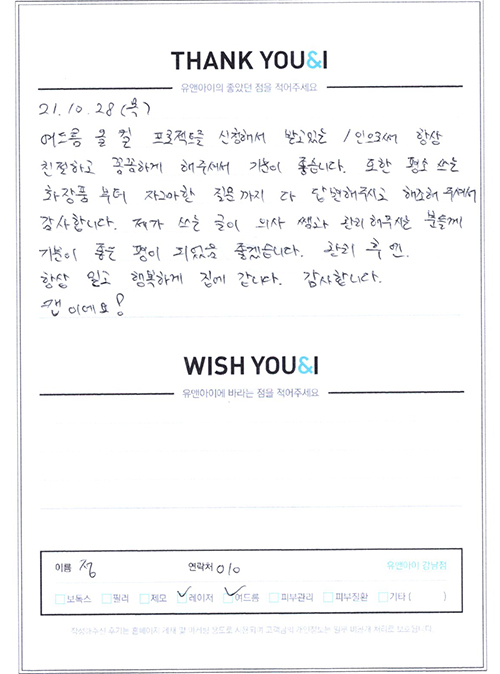 THANK YOU&I
유앤아이의 좋았던 점을 적어주세요
21. 10. 28 (목)
여드름 올 킬 프로젝트를 신청해서 받고있는 1인으로써 항상
친절하고 꼼꼼하게 해주셔서 기분이 좋습니다. 또한 평소 쓰는
화장품 부터 자그마한 질문까지 다 답변해주시고 해주셔서
감사합니다. 제가 쓰는 글이 의사 쌤과 관리해주시는 분들께
기분이 좋은 평이 되었음 좋겠습니다. 관리 후 엔.
항상 믿고 행복하게 집에 갑니다. 감사합니다.
짱 이에요!
WISH YOU&I
유앤아이에 바라는 점을 적어주세요
이름 정 연락처 010 유앤아이 강남점
보톡스 필러 제모 레이저 여드름 피부관리 피부질환 기타 ( )